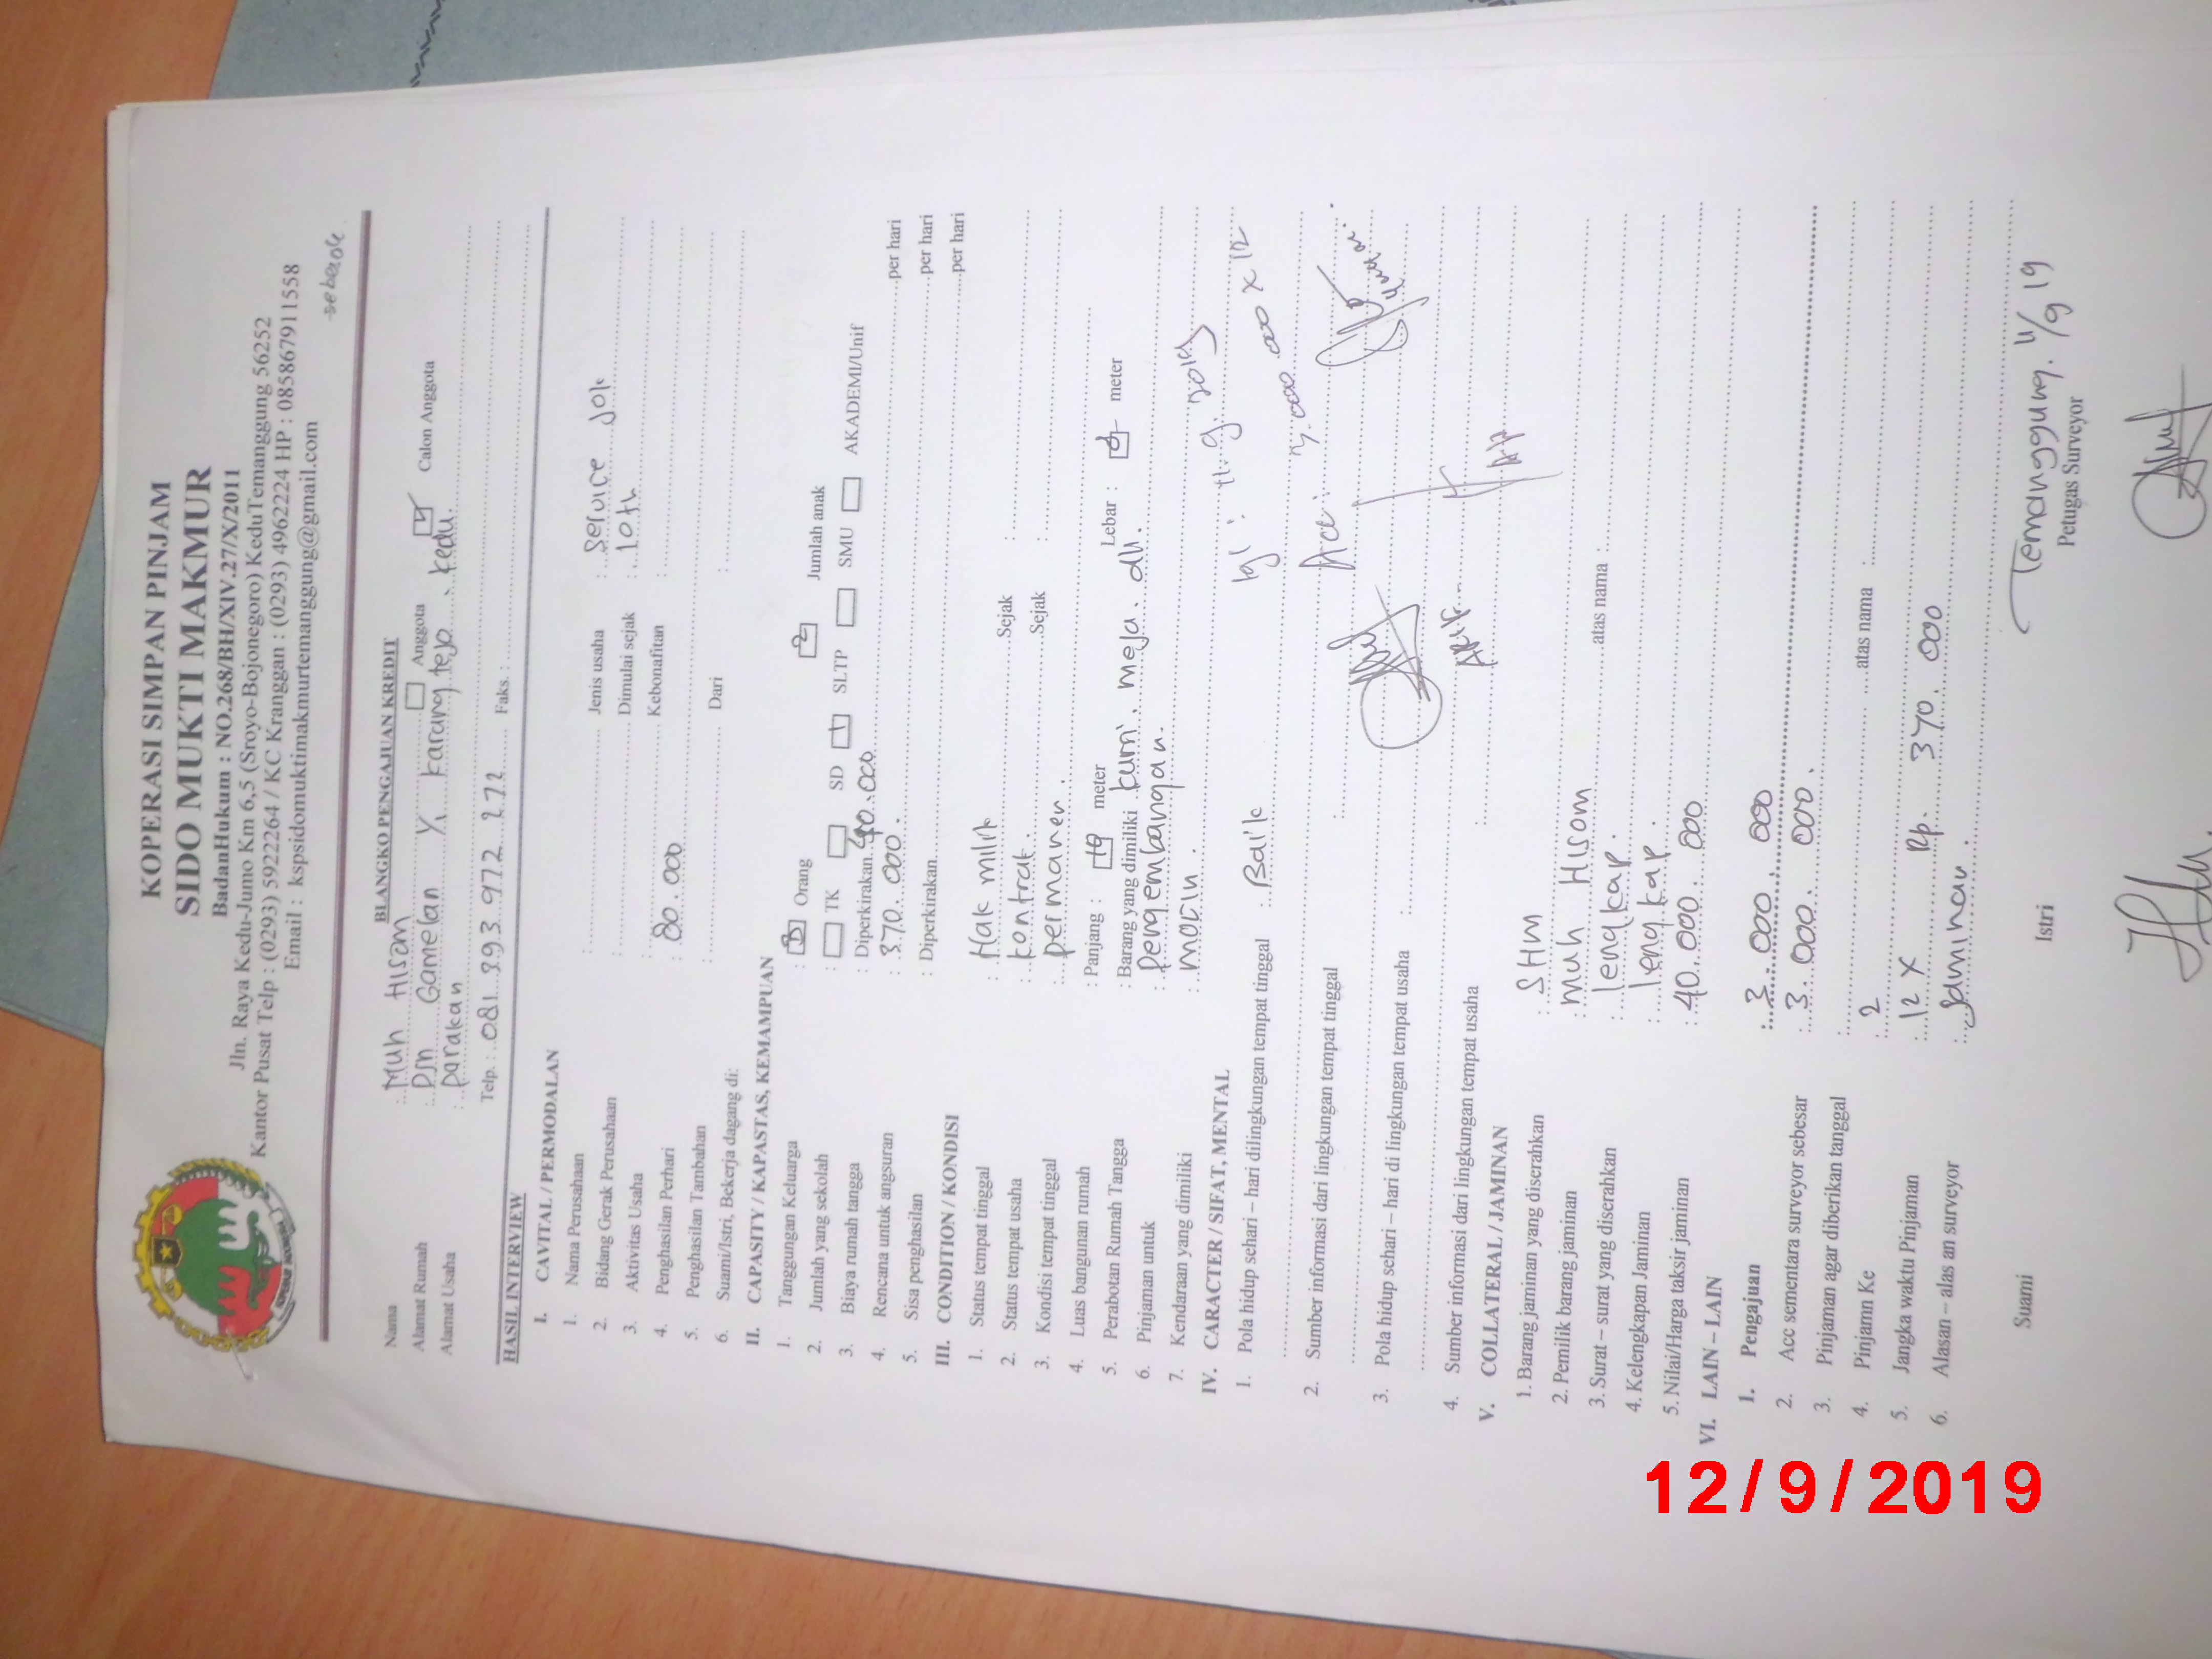 KOPERASI SIMPAN PINJAM
SIDO MUKTI MAKMUR
BadanHukum : NO.268/BH/XIV.27/X/2011
Jln. Raya Kedu-Jumo Km 6,5 (Sroyo-Bojonegoro) KeduTemanggung 56252
Kantor Pusat Telp : (0293) 5922264 / KC Kranggan : (0293) 4962224 HP : 085867911558
Email : kspsidomuktimakmurtemanggung@gmail.com
BLANGKO PENGAJUAN KREDIT
Nama : Muh Hisom Anggota Calon Anggota
Alamat Rumah : Dsn Gamelan karang tejo, kedu.
Alamat Usaha : parakan
Telp. : 081 393 972 272 Faks. :
HASIL INTERVIEW
I. CAVITAL / PERMODALAN
1. Nama Perusahaan : Jenis usaha : Service Jok
2. Bidang Gerak Perusahaan : Dimulai sejak : 10 th
3. Aktivitas Usaha : Kebonafitan :
4. Penghasilan Perhari : 80.000
5. Penghasilan Tambahan : Dari :
6. Suami/Istri, Bekerja dagang di:
II. CAPASITY / KAPASTAS, KEMAMPUAN
1. Tanggungan Keluarga : 3 Orang 2 Jumlah anak
2. Jumlah yang sekolah : TK SD 1 SLTP SMU AKADEMI/Unif
3. Biaya rumah tangga : Diperkirakan 40.000 per hari
4. Rencana untuk angsuran : 370.000. per hari
5. Sisa penghasilan : Diperkirakan per hari
III. CONDITION / KONDISI
1. Status tempat tinggal : Hak milik Sejak :
2. Status tempat usaha : kontrak. Sejak :
3. Kondisi tempat tinggal : permanen.
4. Luas bangunan rumah : Panjang : meter Lebar : meter
5. Perabotan Rumah Tangga : Barang yang dimiliki kursi, meja, dll.
6. Pinjaman untuk : pengembangan.
7. Kendaraan yang dimiliki :
IV. CARACTER / SIFAT, MENTAL
1. Pola hidup sehari – hari dilingkungan tempat tinggal : Baik
2. Sumber informasi dari lingkungan tempat tinggal :
3. Pola hidup sehari – hari di lingkungan tempat usaha :
4. Sumber informasi dari lingkungan tempat usaha :
V. COLLATERAL / JAMINAN
1. Barang jaminan yang diserahkan : SHM
2. Pemilik barang jaminan : Muh Hisom atas nama :
3. Surat – surat yang diserahkan : lengkap.
4. Kelengkapan Jaminan : lengkap.
5. Nilai/Harga taksir jaminan : 40.000.000
VI. LAIN – LAIN
1. Pengajuan : 3.000.000
2. Acc sementara surveyor sebesar : 3.000.000.
3. Pinjaman agar diberikan tanggal : atas nama :
4. Pinjamn Ke : 2
5. Jangka waktu Pinjaman : 12 x Rp. 370.000
6. Alasan – alas an surveyor : Jaminan.
Temanggung. 11/9 19
Suami Istri Petugas Surveyor
12/9/2019